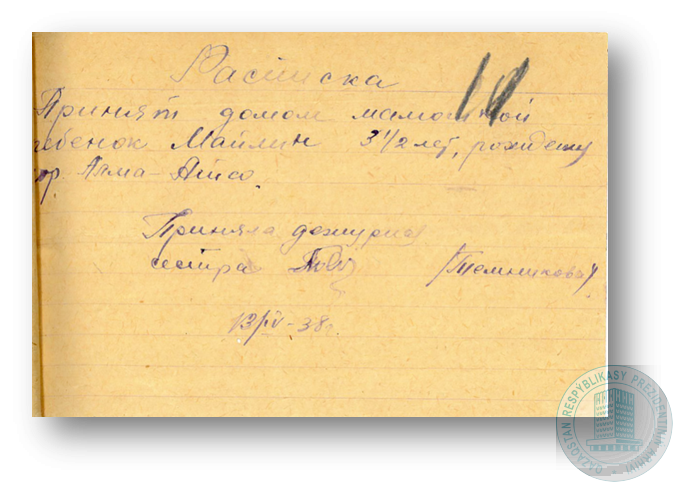 Расписка
10
Принят домом малюткой
ребенок Майлин 3 1/2 лет, рожден
гр. Алма-Ата.
Приняла дежурная
сестра /Темникова/
13/IV-38г.
QAZAQSTAN RESPÝBLIKASY PREZIDENTI